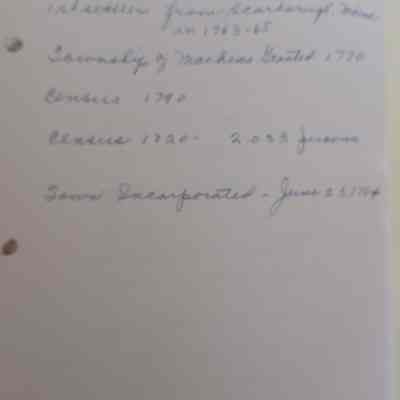 1st settlers from Scarborough, Maine
in 1763-65
Township of Machias Granted 1770
Census 1790
Census 1820- 2,033 persons
Town Incorporated - June 23, 1784